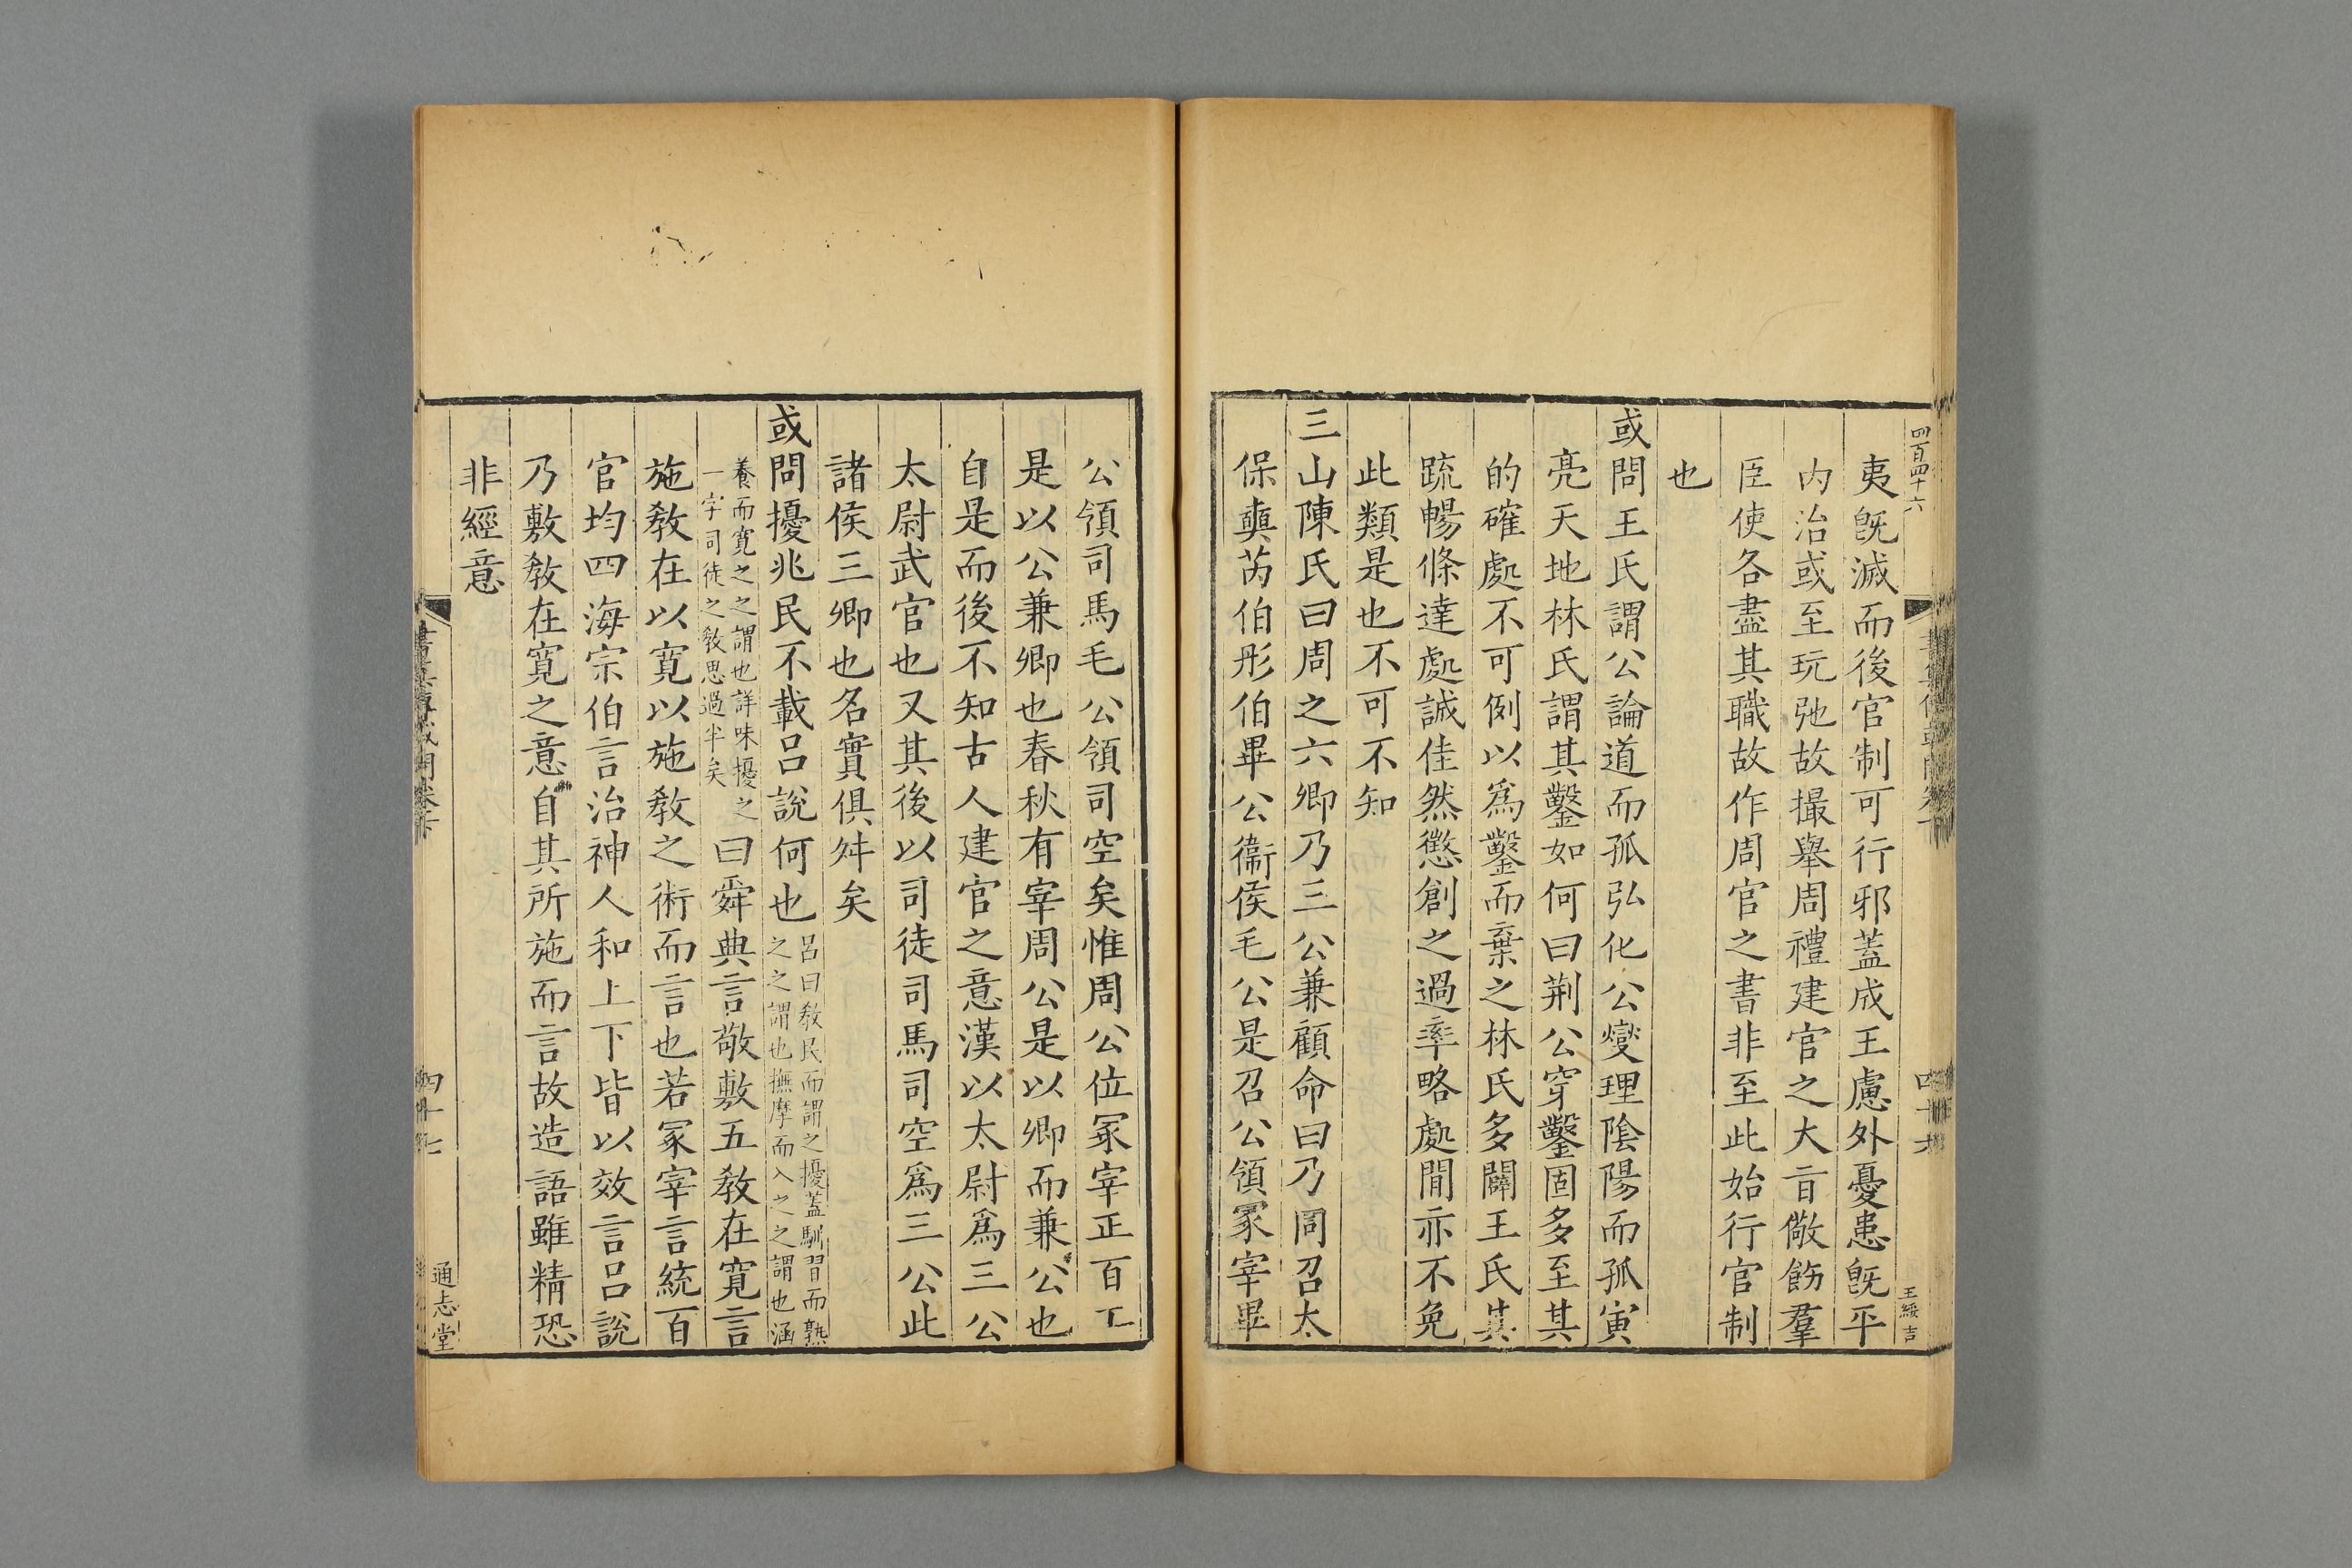 四百四十六
夷旣滅而後官制可行邪蓋成王慮外憂患旣平
内治或至玩弛故撮舉周禮建官之大㫖儆飭羣
臣使各盡其職故作周官之書非至此始行官制
也
或問王氏謂公論道而孤弘化公燮理隂陽而孤寅
亮天地林氏謂其鑿如何曰荆公穿鑿固多至其
的確處不可例以爲鑿而棄之林氏多闢王氏其
疏暢條達處誠佳然懲創之過率略處閒亦不免
此類是也不可不知
三山陳氏曰周之六卿乃三公兼顧命曰乃同召太
保奭芮伯彤伯畢公衞侯毛公是召公領冡宰畢
王綏吉
公領司馬毛公領司空矣惟周公位冡宰正百工
是以公兼卿也春秋有宰周公是以卿而兼公也
自是而後不知古人建官之意漢以太尉爲三公
太尉武官也又其後以司徒司馬司空爲三公此
諸侯三卿也名實俱舛矣
或問擾兆民不載吕說何也吕曰敎民而謂之擾蓋馴習而熟
之之謂也撫摩而入之之謂也涵
養而寛之之謂也詳味擾之
一字司徒之敎思過半矣曰舜典言敬敷五敎在寛言
施敎在以寛以施敎之術而言也若冡宰言統百
官均四海宗伯言治神人和上下皆以效言吕說
乃敷敎在寛之意自其所施而言故造語雖精恐
非經意
四十七
通志堂